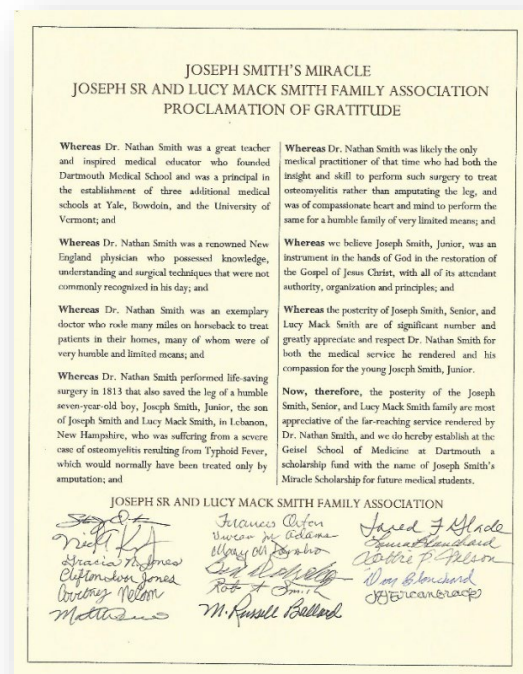 JOSEPH SMITH'S MIRACLE
JOSEPH SR AND LUCY MACK SMITH FAMILY ASSOCIATION
PROCLAMATION OF GRATITUDE
Whereas Dr. Nathan Smith was a great teacher
and inspired medical educator who founded
Dartmouth Medical School and was a principal in
the establishment of three additional medical
schools at Yale, Bowdoin, and the University of
Vermont; and
Whereas Dr. Nathan Smith was a renowned New
England physician who possessed knowledge,
understanding and surgical techniques that were not
commonly recognized in his day; and
Whereas Dr. Nathan Smith was an exemplary
doctor who rode many miles on horseback to treat
patients in their homes, many of whom were of
very humble and limited means; and
Whereas Dr. Nathan Smith performed life-saving
surgery in 1813 that also saved the leg of a humble
seven-year-old boy, Joseph Smith, Junior, the son
of Joseph Smith and Lucy Mack Smith, in Lebanon,
New Hampshire, who was suffering from a severe
case of osteomyelitis resulting from Typhoid Fever,
which would normally have been treated only by
amputation; and
Whereas Dr. Nathan Smith was likely the only
medical practitioner of that time who had both the
insight and skill to perform such surgery to treat
osteomyelitis rather than amputating the leg, and
was of compassionate heart and mind to perform the
same for a humble family of very limited means; and
Whereas we believe Joseph Smith, Junior, was an
instrument in the hands of God in the restoration of
the Gospel of Jesus Christ, with all of its attendant
authority, organization and principles; and
Whereas the posterity of Joseph Smith, Senior, and
Lucy Mack Smith are of significant number and
greatly appreciate and respect Dr. Nathan Smith for
both the medical service he rendered and his
compassion for the young Joseph Smith, Junior.
Now, therefore, the posterity of the Joseph
Smith, Senior, and Lucy Mack Smith family are most
appreciative of the far-reaching service rendered by
Dr. Nathan Smith, and we do hereby establish at the
Geisel School of Medicine at Dartmouth a
scholarship fund with the name of Joseph Smith's
Miracle Scholarship for future medical students.
JOSEPH SR AND LUCY MACK SMITH FAMILY ASSOCIATION
Gracia N. Jones
Jones
Nelson
Frances Orton
Adams
Mary
Smith
M. Russell Ballard
Jared F Glade
Laura Blanchard
P. Nelson
Blanchard